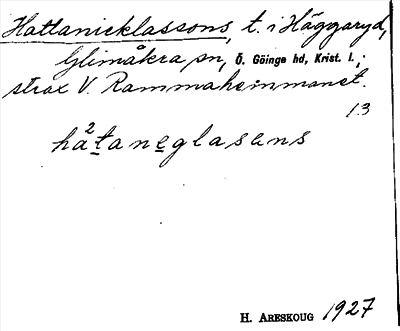 Hattanicklassons, t. i Häggaryd,
Glimåkra sn, Ö. Göinge hd, Krist. l.;
strax V. Rammahemmanet.
13
ha²taneglasens
H. ARESKOUG 1927